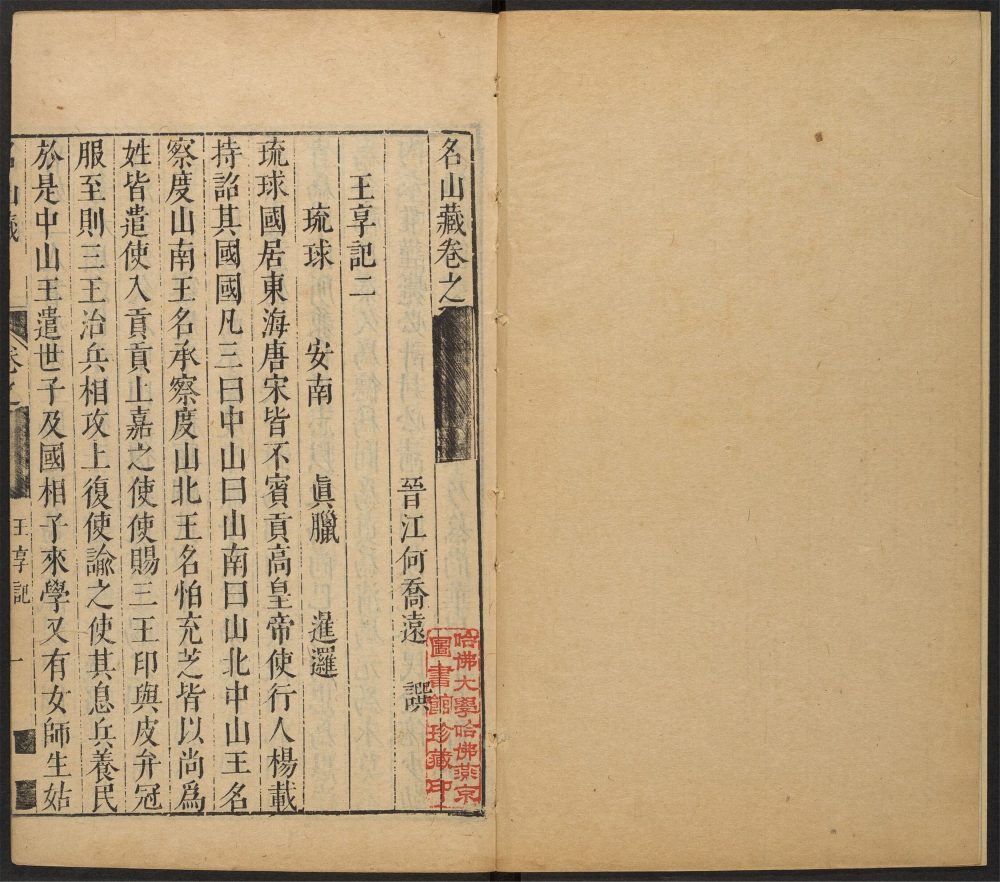 名山藏卷之
晉江何喬遠 譔
王享記二
琉球 安南 眞臘 暹邏
琉球國居東海唐宋皆不賓貢高皇帝使行人楊載
持詔其國國凡三曰中山曰山南曰山北中山王名
察度山南王名承察度山北王名怕充芝皆以尚爲
姓皆遣使入貢貢上嘉之使使賜三王印與皮弁冠
服至則三王治兵相攻上復使諭之使其息兵養民
於是中山王遣世子及國相子來學又有女師生姑
名山藏 卷之 王享記 一
哈佛大學哈佛燕京
圖書館珍藏印